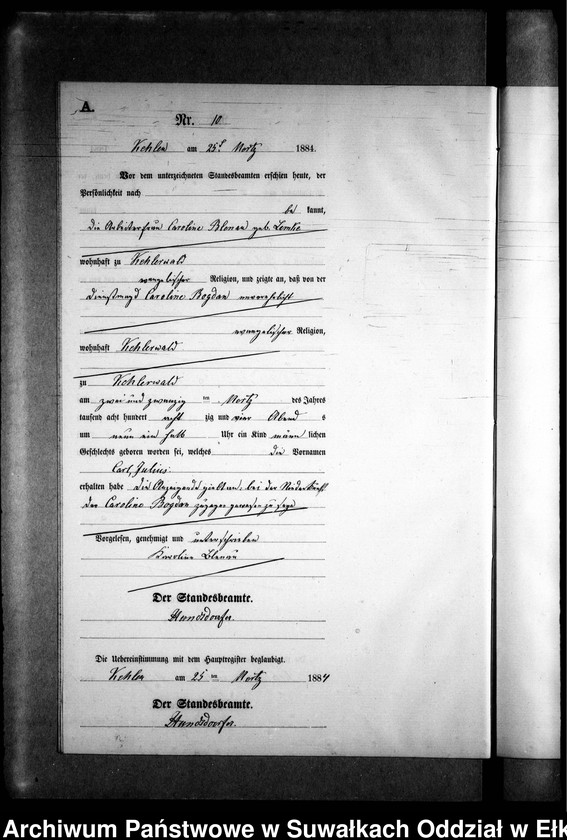 A.
Nr. 10
Kehlen am 25t Maertz 1884.
Vor dem unterzeichneten Standesbeamten erschien heute, der
Persönlichkeit nach
be kannt,
die Arbeiterfrau Caroline Blenau geb. Lemke
wohnhaft zu Kehlerwald
evangelischer Religion, und zeigte an, daß von der
Dienstmagd Caroline Bogdan unverehelicht
evangelischer Religion,
wohnhaft Kehlerwald
zu Kehlerwald
am zwei und zwanzig ten Maertz des Jahres
tausend acht hundert acht zig und vier Abend s
um neun ein halb Uhr ein Kind männ lichen
Geschlechts geboren worden sei, welches die Vornamen
Carl, Julius.
erhalten habe die Anzeigende bei der Niederkunft
der Caroline Bogdan zugegen gewesen zu sein
Vorgelesen, genehmigt und unterschrieben
Karoline Blenau
Der Standesbeamte.
Die Uebereinstimmung mit dem Hauptregister beglaubigt.
Kehlen am 25 ten Maertz 1884
Der Standesbeamte.
Archiwum Państwowe w Suwałkach Oddział w Ełk